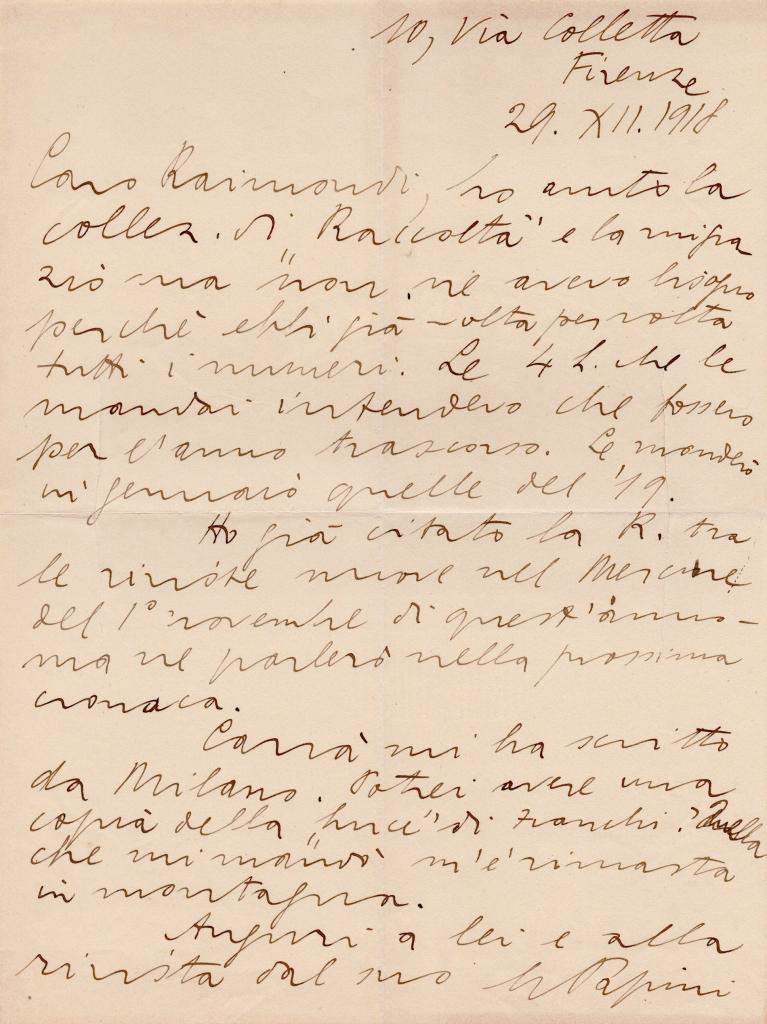 10, Via Colletta
Firenze
29. XII. 1918
Caro Raimondi, ho avuto la
collez. di "Raccolta" e la ringra
zio ma non ne avevo bisogno
perché ebbi già volta per volta
tutti i numeri. Le 4 L. che le
mandai intendevo che fossero
per l'anno trascorso. Le manderò
in gennaio quelle del '19.
Ho già citato la R. tra
le riviste nuove nel Mercure
del 1° novembre di quest'anno -
ma ne parlerò nella prossima
cronaca.
Carrà mi ha scritto
da Milano. Potrei avere una
copia della "Luce" di Franchi? Quella
che mi mandò m'è rimasta
in montagna.
Auguri a lei e alla
rivista dal suo G Papini